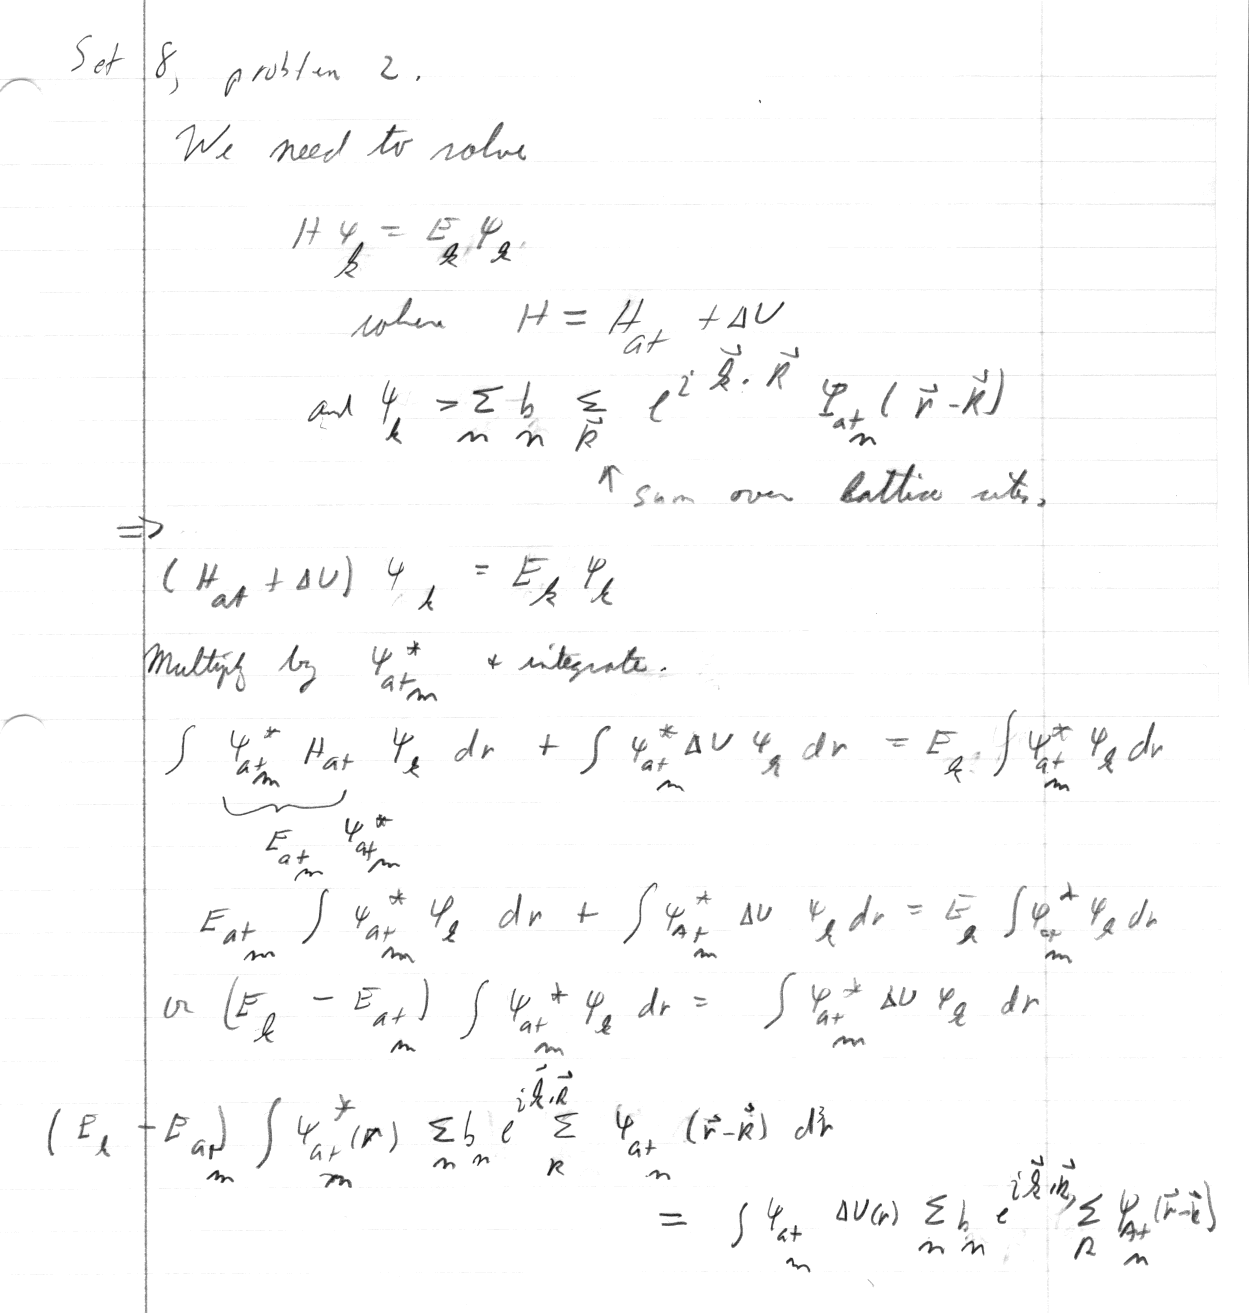 Set 8, problem 2.
We need to solve
H ψ_k = E_k ψ_k.
where H = H_at + ΔU
and ψ_k = Σ_n b_n Σ_R⃗ e^{i k⃗·R⃗} ψ_{at n}(r⃗-R⃗)
↑ sum over lattice sites.
⇒
(H_at + ΔU) ψ_k = E_k ψ_k
Multiply by ψ*_{at m} + integrate.
∫ ψ*_{at m} H_at ψ_k dr + ∫ ψ*_{at m} ΔU ψ_k dr = E_k ∫ ψ*_{at m} ψ_k dr
E_{at m} ψ*_{at m}
E_{at m} ∫ ψ*_{at m} ψ_k dr + ∫ ψ*_{At m} ΔU ψ_k dr = E_k ∫ ψ*_{at m} ψ_k dr
or (E_k - E_{at m}) ∫ ψ*_{at m} ψ_k dr = ∫ ψ*_{at m} ΔU ψ_k dr
(E_k - E_{at m}) ∫ ψ*_{at m}(r) Σ_n b_n e^{i k⃗·R⃗} Σ_R ψ_{at n} (r⃗-R⃗) dr⃗
= ∫ ψ_{at m} ΔU(r) Σ_n b_n e^{i k⃗·R⃗} Σ_R ψ_{At n}(r⃗-R⃗)